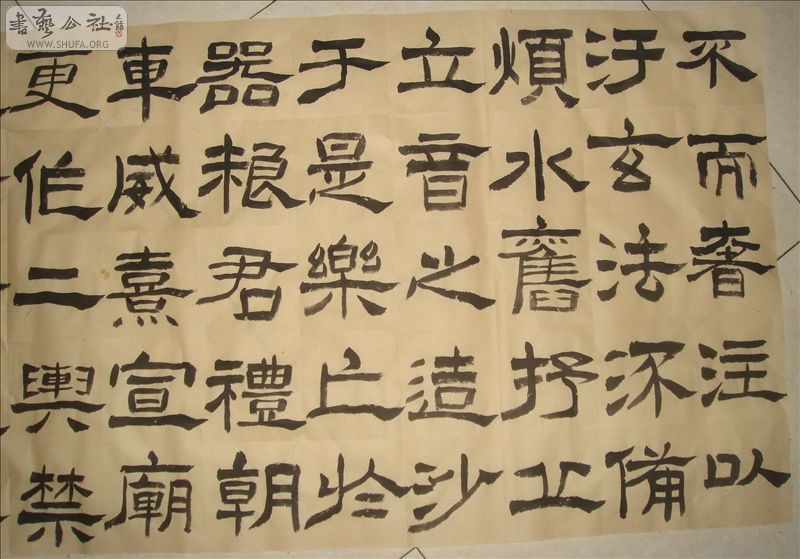 書藝公社
WWW.SHUFA.ORG
不而奢注以
汙玄法流備
煩水舊抒丘
立音之造沙
于是樂亡於
器粮君禮朝
車威熹宣廟
更作二輿禁